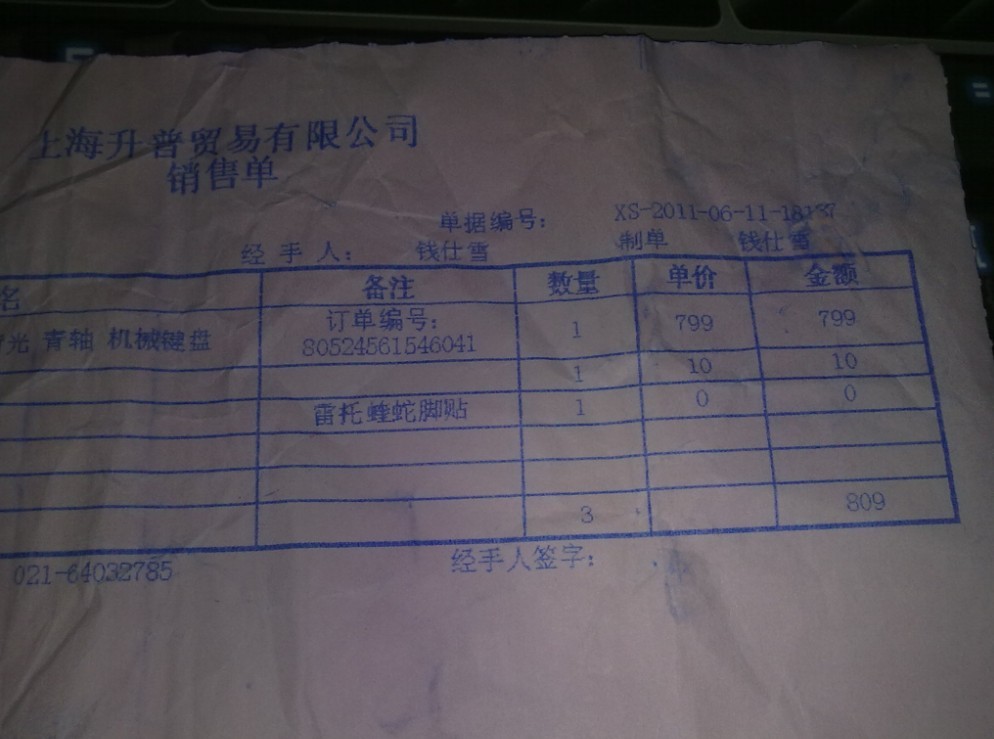 上海升普贸易有限公司
销售单
单据编号： XS-2011-06-11-18137
经 手 人： 钱仕雪 制单 钱仕雪
名 备注 数量 单价 金额
光 青轴 机械键盘 订单编号： 80524561546041 1 799 799
1 10 10
雷托蝰蛇脚贴 1 0 0
3 809
021-64032785 经手人签字：